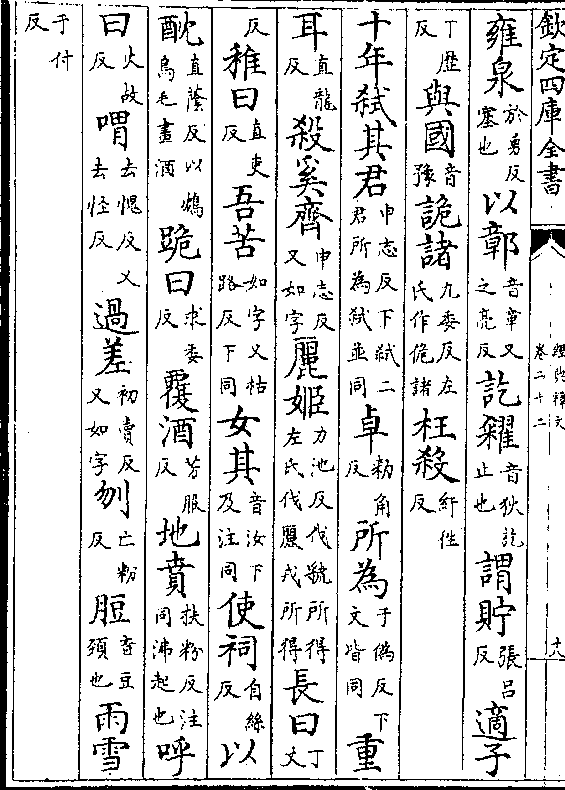 欽定四庫全書
經典釋文
卷二十二
十八
雍泉於勇反塞也以鄣音章又之亮反訖糴音狄訖止也謂貯張呂反適子
丁歷反與國音豫詭諸九委反左氏作佹諸枉殺紆往反
十年弑其君申志反下弑二君所為弑並同卓勑角反所為于偽反下文皆同重
耳直龍反殺奚齊申志反又如字麗姬力池反伐虢所得左氏伐驪戎所得長曰丁丈
反稚曰直吏反吾苦如字又枯路反下同女其音汝下及注同使祠自絲反以
酖直蔭反以鴆鳥毛畫酒跪曰求委反覆酒芳服反地賁扶粉反注同沸起也呼
曰火故反喟去愧反又去怪反過差初賣反又如字刎亡粉反脰音豆頸也雨雪
于付反